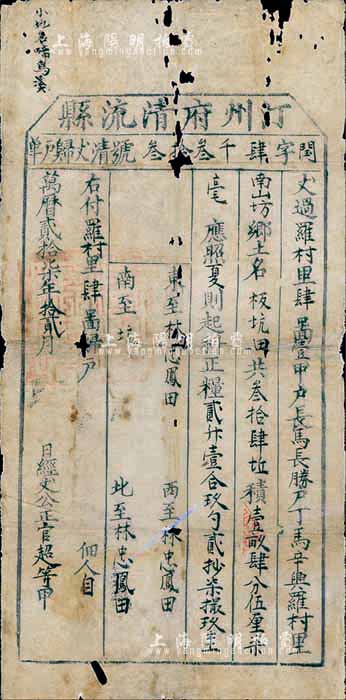 小地名啼鳥崬
汀州府清流縣
閏字肆千叁拾叁號清丈歸户單
丈過羅村里肆畐壹甲户長馬長勝户丁馬辛興羅村里
南山坊鄉土名板坑田共叁拾肆坵積壹畝肆分伍厘柒
毫應照夏則起科正糧貳升壹合玖勺貳抄柒撮玖圭
東至林忠鳳田
西至林忠鳳田
南至坑
北至林忠鳳田
右付羅村里肆畐歸户
佃人自
萬曆貳拾柒年拾貳月
日經丈公正官超等甲
上海陽明拍賣
www.yangmingauction.com